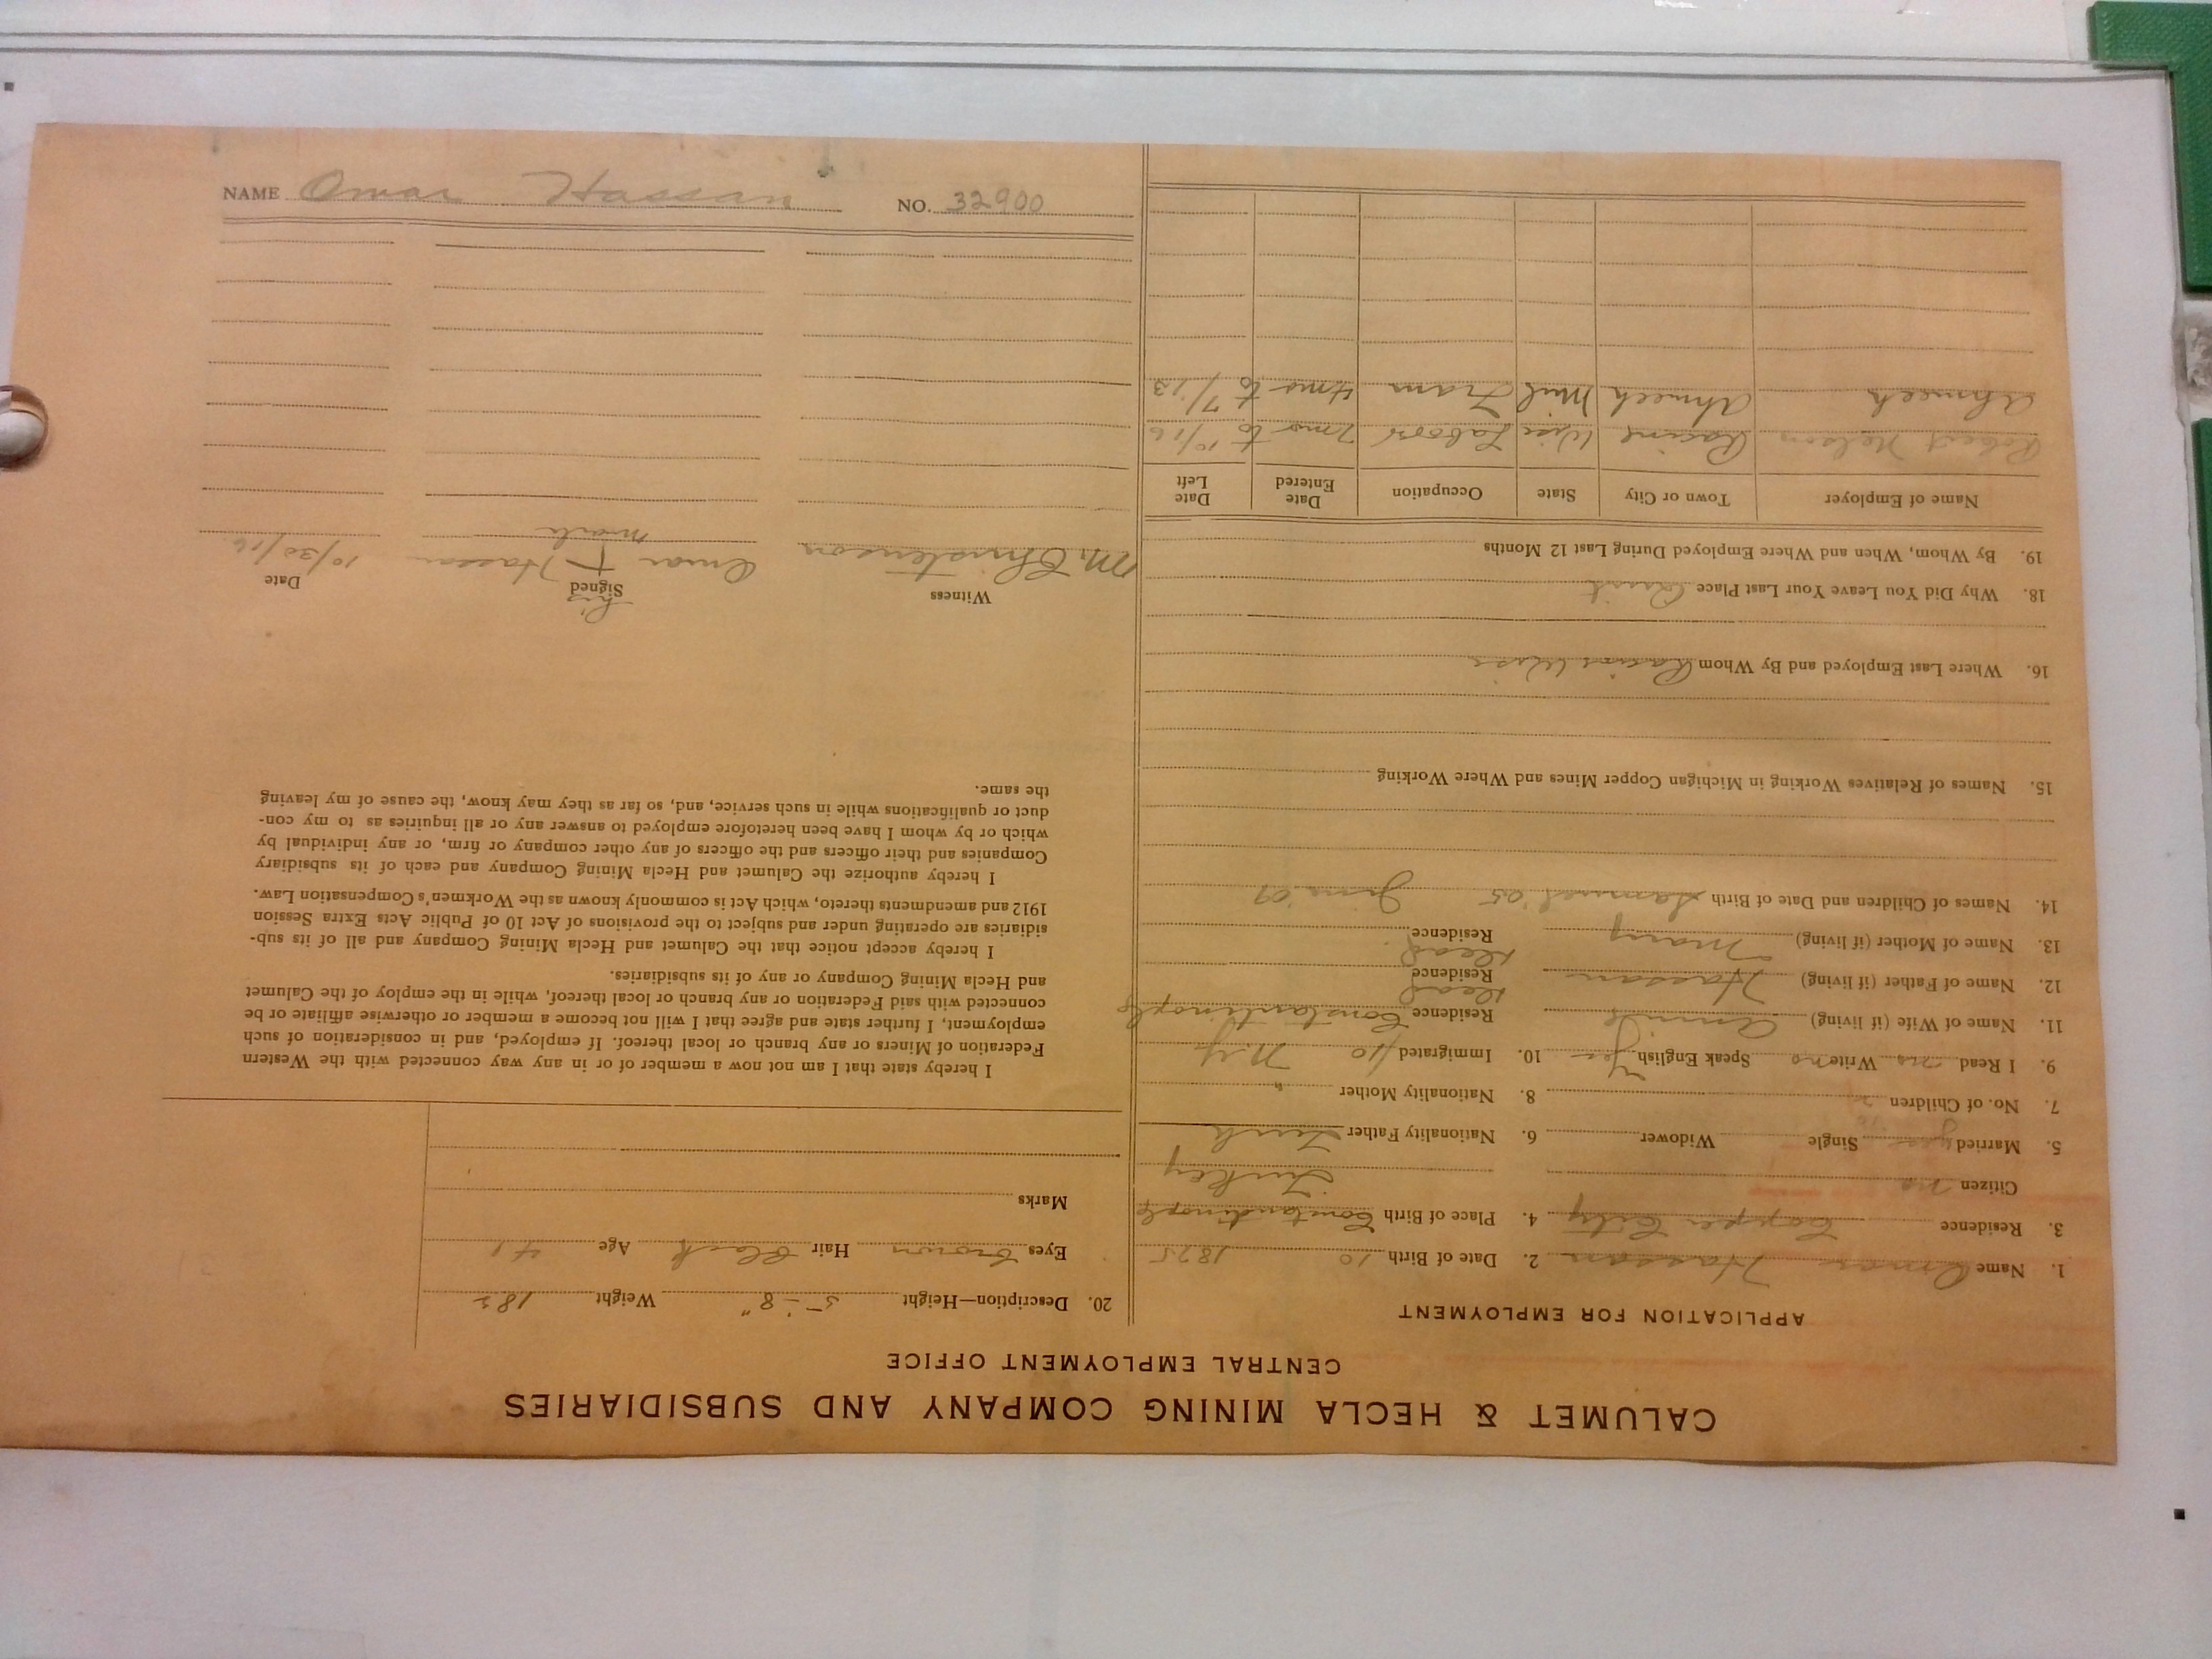 NAME Omar Hassan NO. 32900
CALUMET & HECLA MINING COMPANY AND SUBSIDIARIES
CENTRAL EMPLOYMENT OFFICE
APPLICATION FOR EMPLOYMENT
1. Name Omar Hassan 2. Date of Birth 10 1875
3. Residence Copper City 4. Place of Birth Constantinople
Citizen no Turkey
5. Married yes Single Widower 6. Nationality Father Turk
7. No. of Children 2 8. Nationality Mother "
9. I Read no Write no Speak English yes 10. Immigrated /10 N.Y.
11. Name of Wife (if living) Annie Residence Constantinople
12. Name of Father (if living) Hassan Residence Dead
13. Name of Mother (if living) Mary Residence Dead
14. Names of Children and Date of Birth Samuel '05 '07
15. Names of Relatives Working in Michigan Copper Mines and Where Working
16. Where Last Employed and By Whom Racine Wisc
18. Why Did You Leave Your Last Place Quit
19. By Whom, When and Where Employed During Last 12 Months
Name of Employer Town or City State Occupation Date Entered Date Left
Robert Nelson Racine Wisc Labor 7 mo to 10/16
Ahmeek Ahmeek Mich Tram 4 mo to 7/13
20. Description—Height 5'-8" Weight 182
Eyes brown Hair Black Age 41
Marks
I hereby state that I am not now a member of or in any way connected with the Western
Federation of Miners or any branch or local thereof. If employed, and in consideration of such
employment, I further state and agree that I will not become a member or otherwise affiliate or be
connected with said Federation or any branch or local thereof, while in the employ of the Calumet
and Hecla Mining Company or any of its subsidiaries.
I hereby accept notice that the Calumet and Hecla Mining Company and all of its sub-
sidiaries are operating under and subject to the provisions of Act 10 of Public Acts Extra Session
1912 and amendments thereto, which Act is commonly known as the Workmen's Compensation Law.
I hereby authorize the Calumet and Hecla Mining Company and each of its subsidiary
Companies and their officers and the officers of any other company or firm, or any individual by
which or by whom I have been heretofore employed to answer any or all inquiries as to my con-
duct or qualifications while in such service, and, so far as they may know, the cause of my leaving
the same.
Witness Signed Date
his
M. Christenson Omar + Hassan 10/30/16
mark